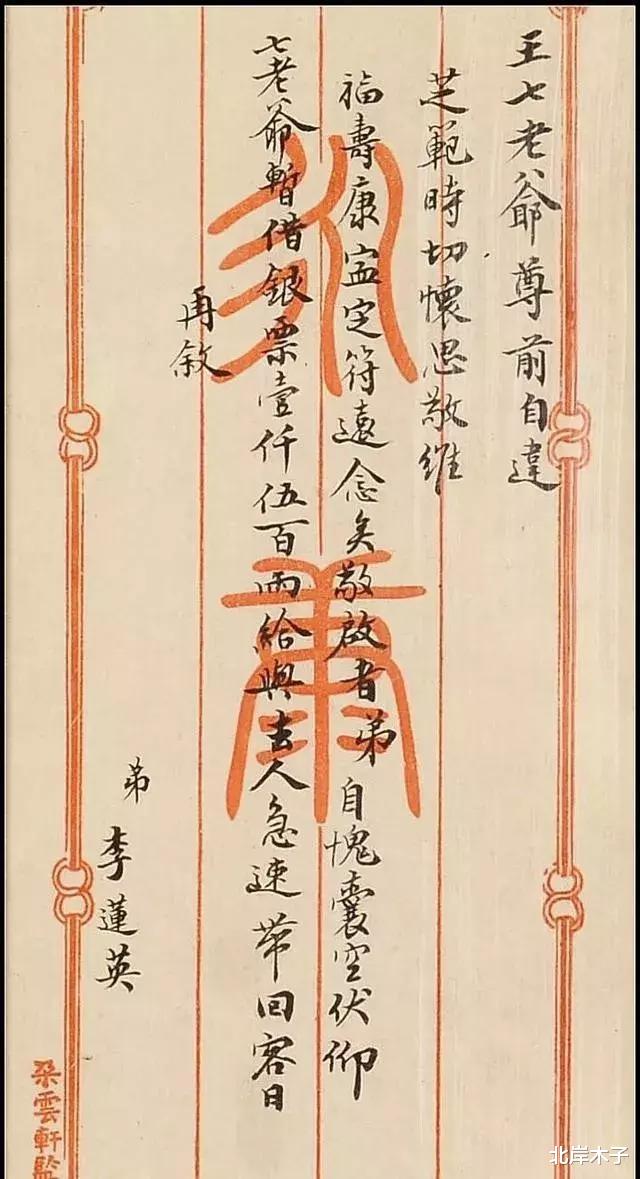 王七老爺尊前自違
芝範時切懷思敬維
福壽康寍定符遠念矣敬啟者弟自愧囊空伏仰
七老爺暫借銀票壹仟伍百兩給與去人急速帶回容日
再敘
弟
李蓮英
朵雲軒監
北岸木子